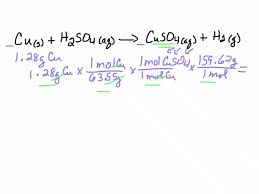 _Cu(s) + H₂SO₄(aq) → _CuSO₄(aq) + H₂(g)
1.28g Cu
1.28g Cu × 1 mol Cu / 63.55g × 1 mol CuSO₄ / 1 mol Cu × 159.62g / 1 mol =